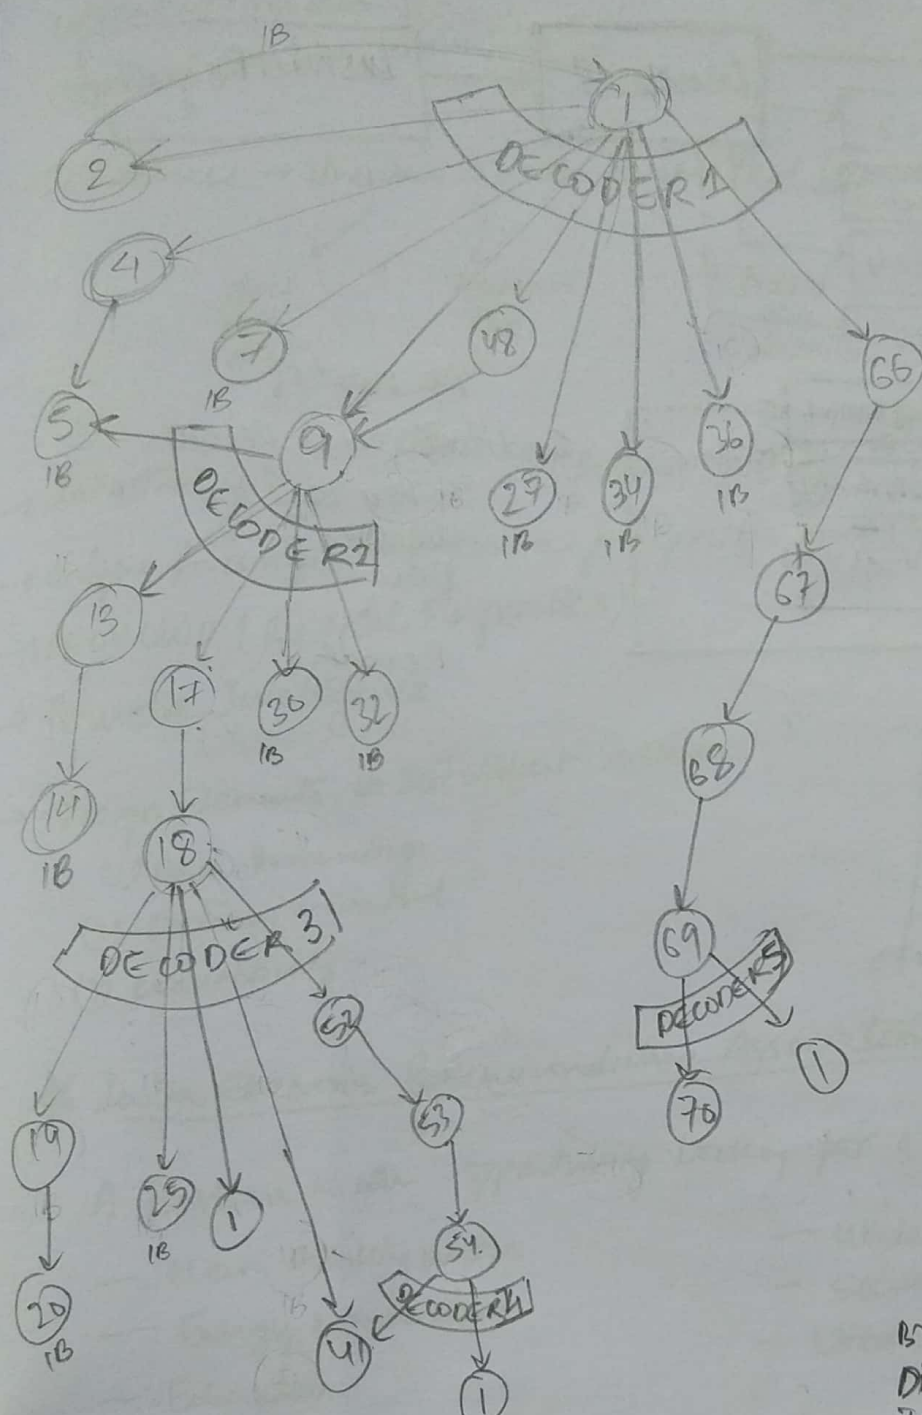 1B
1
2
DECODER 1
4
7
1B
48
66
5
1B
9
36
1B
27
1B
34
1B
DECODER2
67
13
17
30
1B
32
1B
68
14
1B
18
DECODER 3
69
DECODER5
52
1
70
53
19
25
1B
1
54
DECODER4
20
1B
41
1